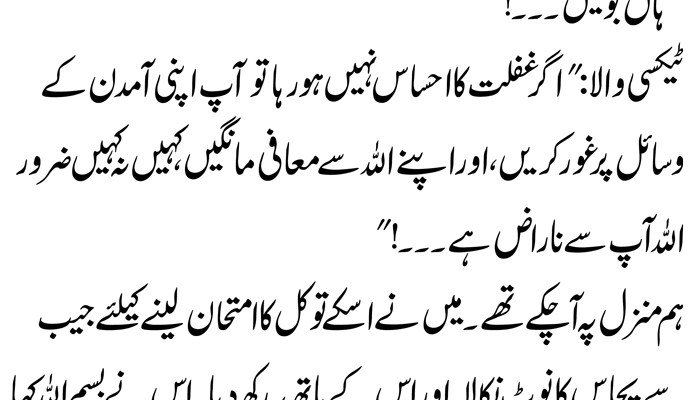 ہاں بولیں۔۔۔!
ٹیکسی والا:" اگر غفلت کا احساس نہیں ہو رہا تو آپ اپنی آمدن کے
وسائل پر غور کریں،اور اپنے اللہ سے معافی مانگیں،کہیں نہ کہیں ضرور
اللہ آپ سے ناراض ہے۔۔۔!"
ہم منزل پہ آچکے تھے۔میں نے اسکے توکل کا امتحان لینے کیلئے جیب
سے پچاس کا نوٹ نکالا اور اس کے ہاتھ پہ رکھ دیا۔اس نے بسم اللہ کہا